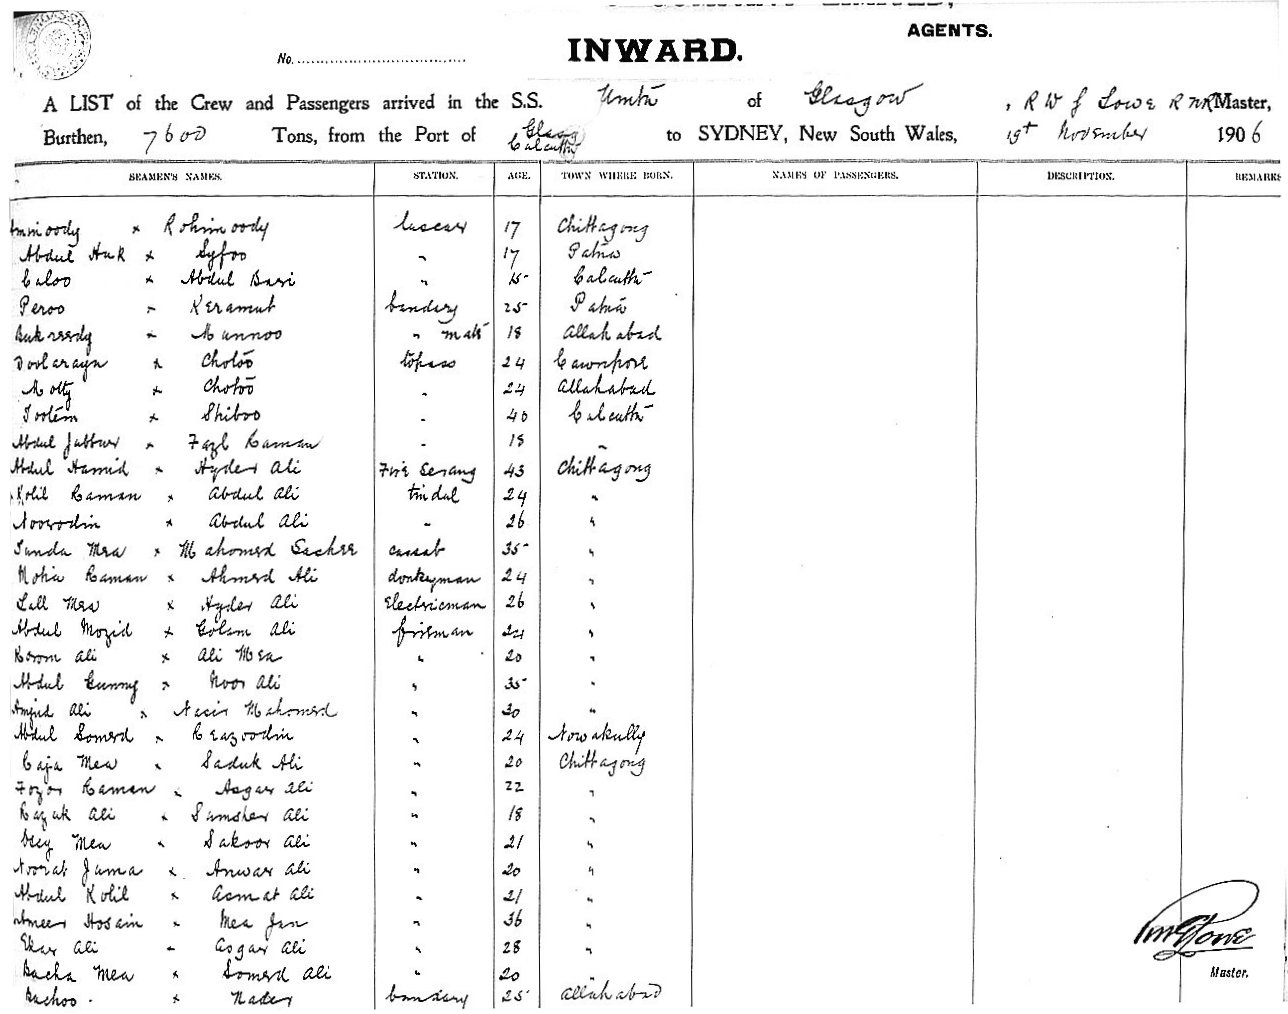 COMPANY LIMITED,
AGENTS.
No.
INWARD.
A LIST of the Crew and Passengers arrived in the S.S. Umta of Glasgow, R W J Lowe R N R Master,
Burthen, 7600 Tons, from the Port of Calcutta to SYDNEY, New South Wales, 19th November 1906
SEAMEN'S NAMES. STATION. AGE. TOWN WHERE BORN. NAMES OF PASSENGERS. DESCRIPTION. REMARKS
x Rohimoody lascar 17 Chittagong
Abdul Huk x Syfoo " 17 Patna
Caloo x Abdul Bari " 15 Calcutta
Peroo x Keramut bandary 25 Patna
x Munnoo " mate 18 Allahabad
x Chotoo topass 24 Cawnpore
Motty x Chotoo " 24 Allahabad
x Shiboo " 40 Calcutta
Abdul Jubbur x Fazl Raman " 18 "
Abdul Hamid x Hyder Ali Fire Serang 43 Chittagong
Kolil Raman x Abdul Ali tindal 24 "
Noorodin x Abdul Ali " 26 "
Sunda Mea x Mahomed cassab 35 "
Raman x Ahmed Ali donkeyman 24 "
Lall Mea x Hyder Ali Electricman 26 "
Abdul Mozid x Golam Ali fireman 24 "
Korom Ali x Ali Mea " 20 "
Abdul Gunny x Noor Ali " 35 "
Amjid Ali x Nasir Mahomed " 30 "
Abdul Somed x " 24 Nowakully
Caja Mea x Saduk Ali " 20 Chittagong
Fozor Raman x Asgar Ali " 22 "
Razak Ali x Sumsher Ali " 18 "
Mea x Sakoor Ali " 21 "
Jama x Anwar Ali " 20 "
Abdul Kolil x Asmat Ali " 21 "
Ameer Hosain x Mea Jan " 36 "
Ekar Ali x Asgar Ali " 28 "
Bacha Mea x Somed Ali " 20 "
Buchoo x Nader bandary 25 Allahabad
Lowe
Master.